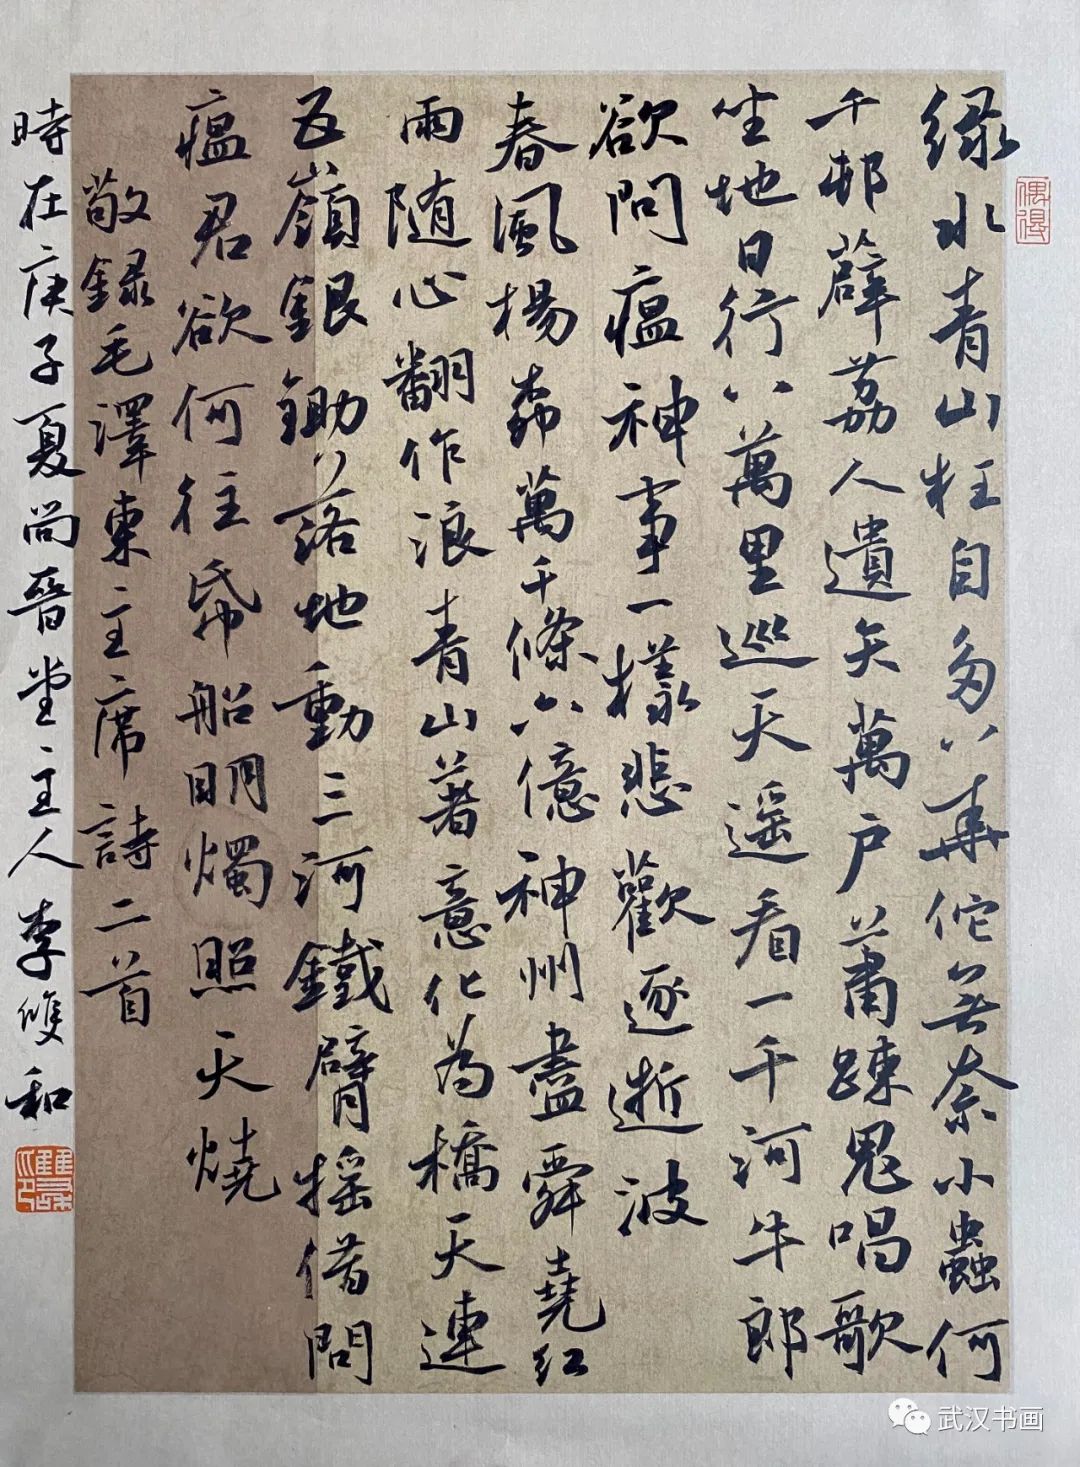 绿水青山枉自多华佗无奈小蟲何
千邨薜荔人遺矢萬户蕭踈鬼唱歌
坐地日行八萬里巡天遥看一千河牛郎
欲問瘟神事一樣悲歡逐逝波
春風楊柳萬千條六億神州盡舜堯红
雨随心翻作浪青山著意化為橋天連
五嶺銀鋤落地動三河鐵臂摇借問
瘟君欲何往帋船明燭照天燒
敬録毛澤東主席詩二首
時在庚子夏尚晉堂主人李雙和
偶得
武汉书画